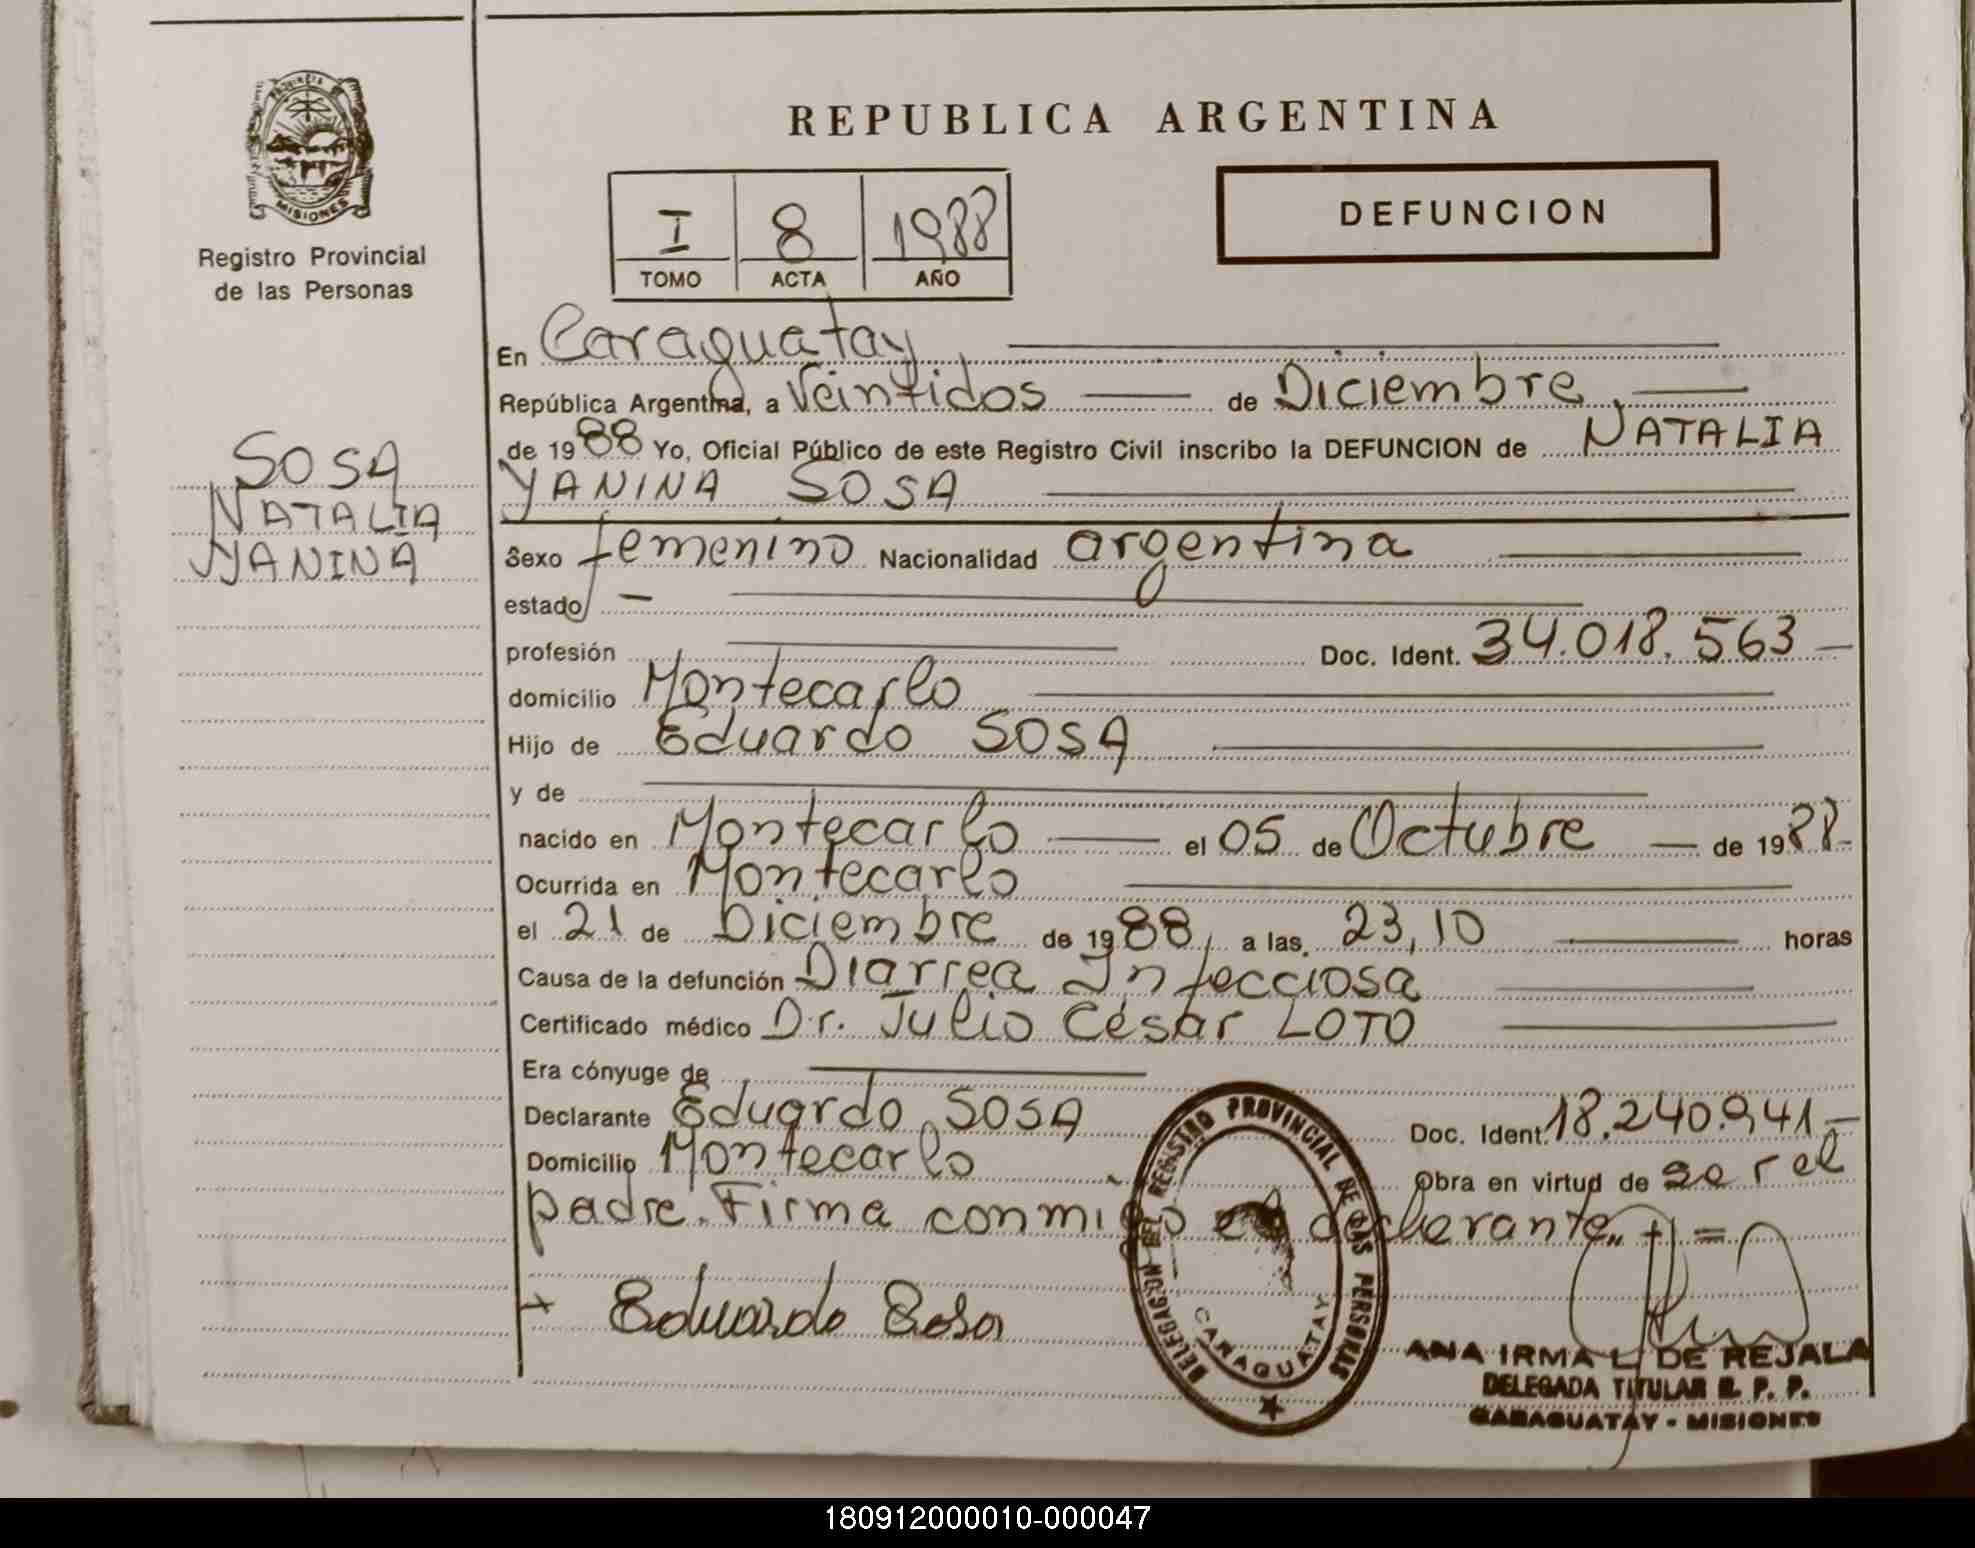 PROVINCIA DE
MISIONES
Registro Provincial
de las Personas
SOSA
NATALIA
YANINA
REPUBLICA ARGENTINA
I 8 1988
TOMO ACTA AÑO
DEFUNCION
En Caraguatay
República Argentina, a Veintidos de Diciembre
de 1988 Yo, Oficial Público de este Registro Civil inscribo la DEFUNCION de NATALIA
YANINA SOSA
Sexo femenino Nacionalidad argentina
estado -
profesión Doc. Ident. 34.018.563
domicilio Montecarlo
Hijo de Eduardo SOSA
y de
nacido en Montecarlo el 05 de Octubre de 1988-
Ocurrida en Montecarlo
el 21 de Diciembre de 1988, a las 23,10 horas
Causa de la defunción Diarrea Infecciosa
Certificado médico Dr. Julio César LOTO
Era cónyuge de
Declarante Eduardo SOSA Doc. Ident. 18.240.941-
Domicilio Montecarlo Obra en virtud de ser el
padre. Firma conmigo el declarante
Eduardo Sosa
DELEGACION DEL REGISTRO PROVINCIAL DE LAS PERSONAS
CARAGUATAY
ANA IRMA L. DE REJALA
DELEGADA TITULAR R. P. P.
CARAGUATAY - MISIONES
180912000010-000047